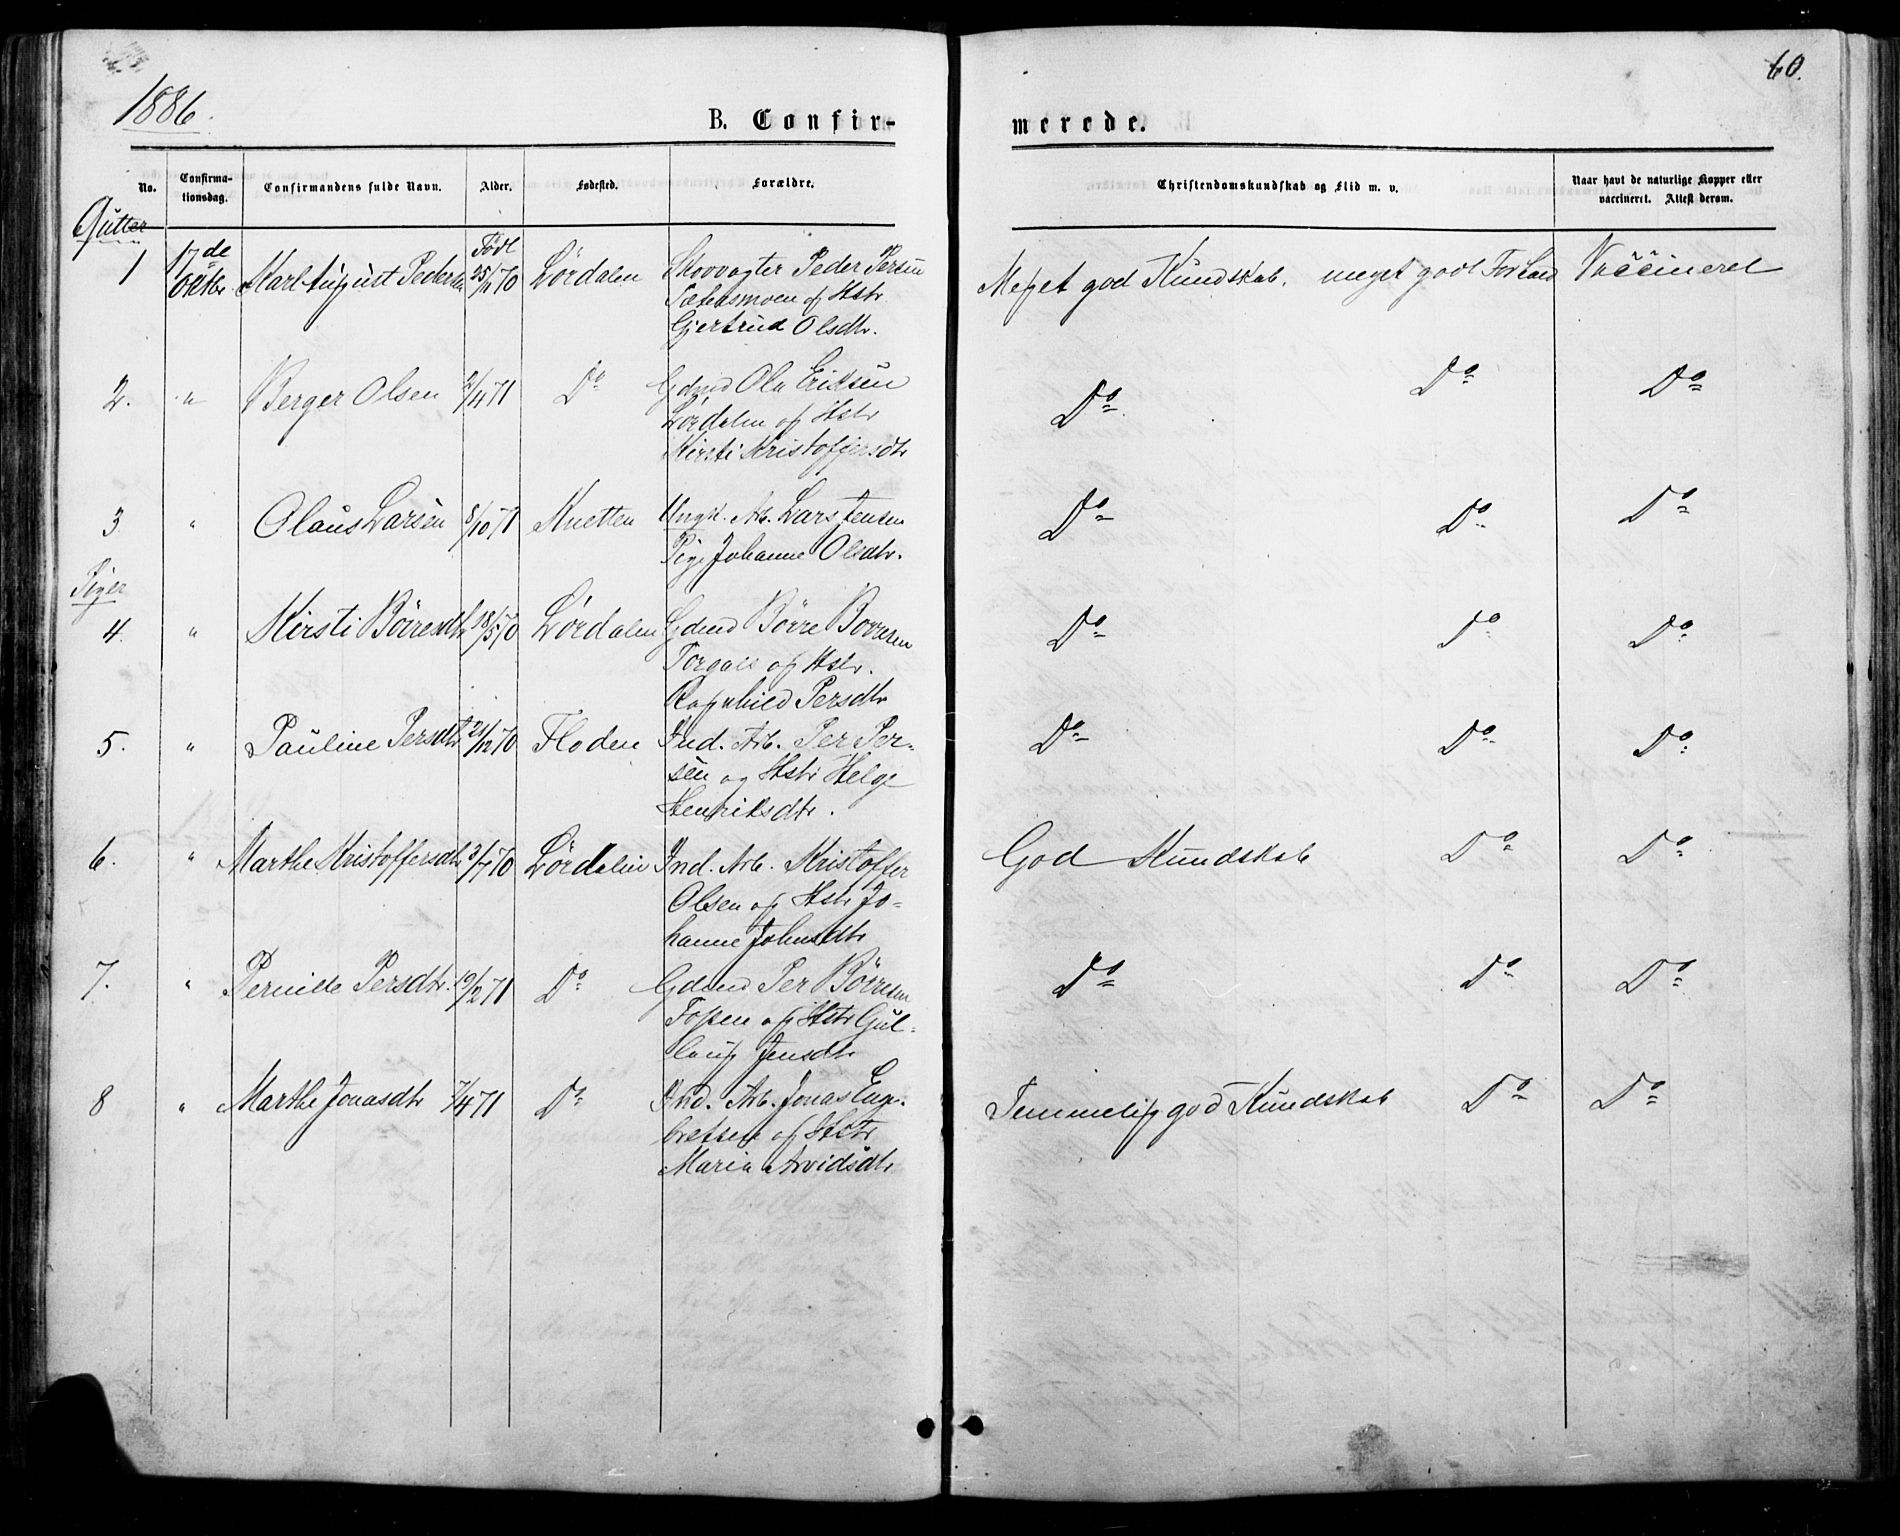 60.
1886.
B. Confir-
merede.
No.
Confirma-
tionsdag.
Confirmandens fulde Navn.
Alder.
Fødested.
Forældre.
Christendomskundskab og Flid m. v.
Naar havt de naturlige Kopper eller
vaccineret. Attest derom.
Gutter
1 17de Oktbr Karl August Pedersen Født 25/11 70 Lørdalen Skovvogter Peder Persen
Sætersmoen og Hstr
Gjertrud Olsdtr.
Meget god Kundskab. meget godt Forhold Vaccineret
2. " Berger Olsen 2/4 71 Do Gdmd Ola Eriksen
Lørdalen og Hstr
Kirsti Kristoffersdtr
Do Do Do
3 " Olaus Larsen 8/10 71 Knetten Ungk. Arb. Lars Jensen
Pige Johanne Olsdtr.
Do Do Do
Piger
4. " Kirsti Börresdtr 18/5 70 Lørdalen Gdmd Börre Börresen
og Hstr.
Ragnhild Persdtr
Do Do Do
5. " Pauline Persdtr 21/12 70 Floden Ind. Arb. Per Per-
sen og Hstr Helge
Henriksdtr.
Do Do Do
6. " Marthe Kristoffersdtr 3/7 70 Lørdalen Ind. Arb. Kristoffer
Olsen og Hstr Jo-
hanne Johnsdtr
God Kundskab Do Do
7. " Pernille Persdtr. 19/2 71 Do Gdmd Per Börresen
Fossen og Hstr Gul-
laug Jensdtr
Do Do Do
8 " Marthe Jonasdtr 7/4 71 Do Ind. Arb. Jonas Eng-
bretsen og Hstr
Maria Arvidsdtr
Temmelig god Kundskab Do Do